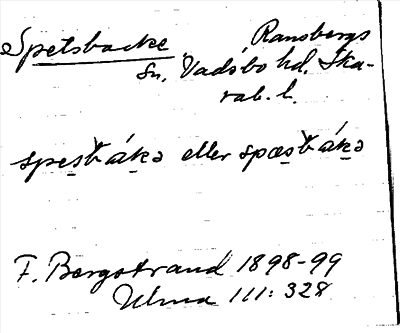 Spetsbacke, Ransbergs
Sn, Vadsbo hd. Ska-
rab. l.
spesbákə eller spæsbákə
F. Bergstrand 1898-99
Ulma 111:328